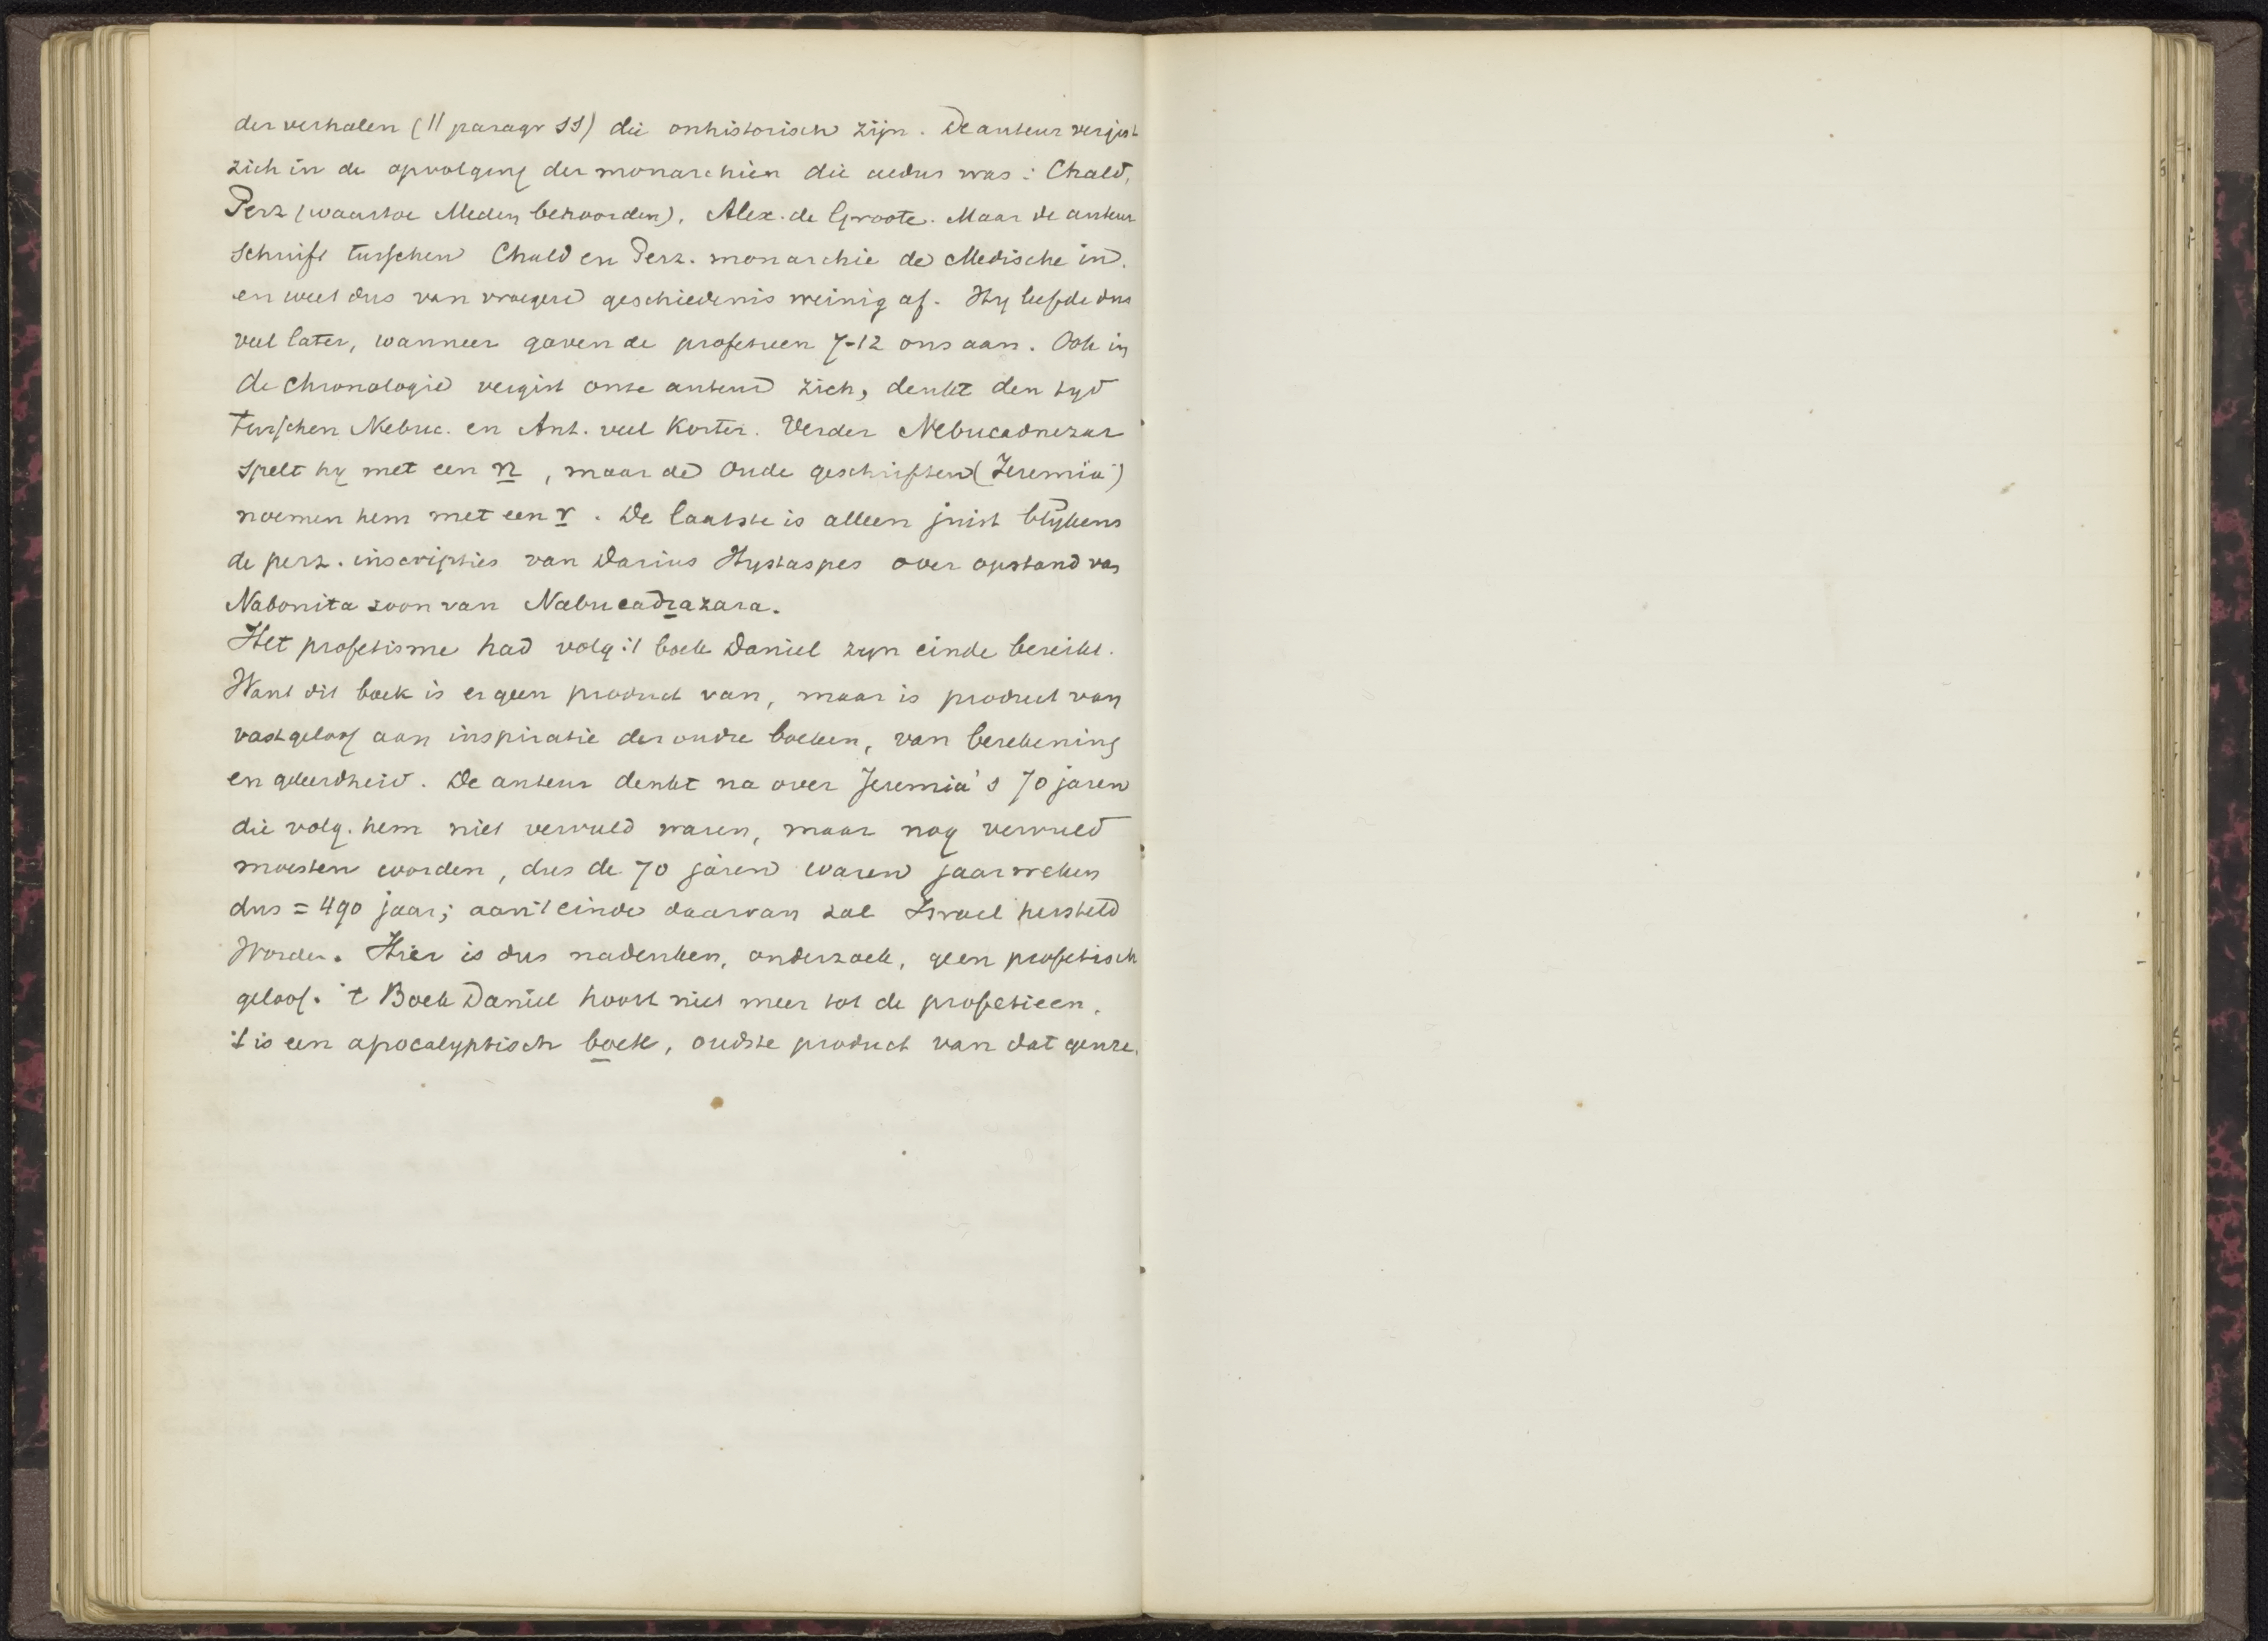 der verhalen (11 paragr SS) die onhistorisch zijn. De auteur vergist
zich in de opvolging der monarchien die aldus was: Chald,
Perz (waartoe Meden behoorden), Alex. de Groote. Maar de auteur
schuift tusschen Chald en Perz. monarchie de Medische in.
en weet dus van vroegere geschiedenis weinig af. Hy leefde dus
veel later, wanneer gaven de profetieen 7-12 ons aan. Ook in
de chronologie vergist onze auteur zich, denkt den tyd
tusschen Nebuc. en Ant. veel korter. Verder Nebucadnezar
spelt hy met een n, maar de oude geschriften (Jeremia)
noemen hem met een r. De laatste is alleen juist blijkens
de perz. inscripties van Darius Hystaspes over opstand van
Nabonita zoon van Nabucadrazara.
Het profetisme had volg 't boek Daniel zyn einde bereikt.
Want dit boek is er geen product van, maar is product van
vast geloof aan inspiratie der oudre boeken, van berekening
en geleerdheid. De auteur denkt na over Jeremia's 70 jaren
die volg. hem niet vervuld waren, maar nog vervuld
moesten worden, dus de 70 jaren waren jaarweken
dus = 490 jaar; aan 't einde daarvan zal Israel hersteld
worden. Hier is dus nadenken, onderzoek, geen profetisch
geloof. 't Boek Daniel hoort niet meer tot de profetieen,
't is een apocalyptisch boek, oudste product van dat genre.